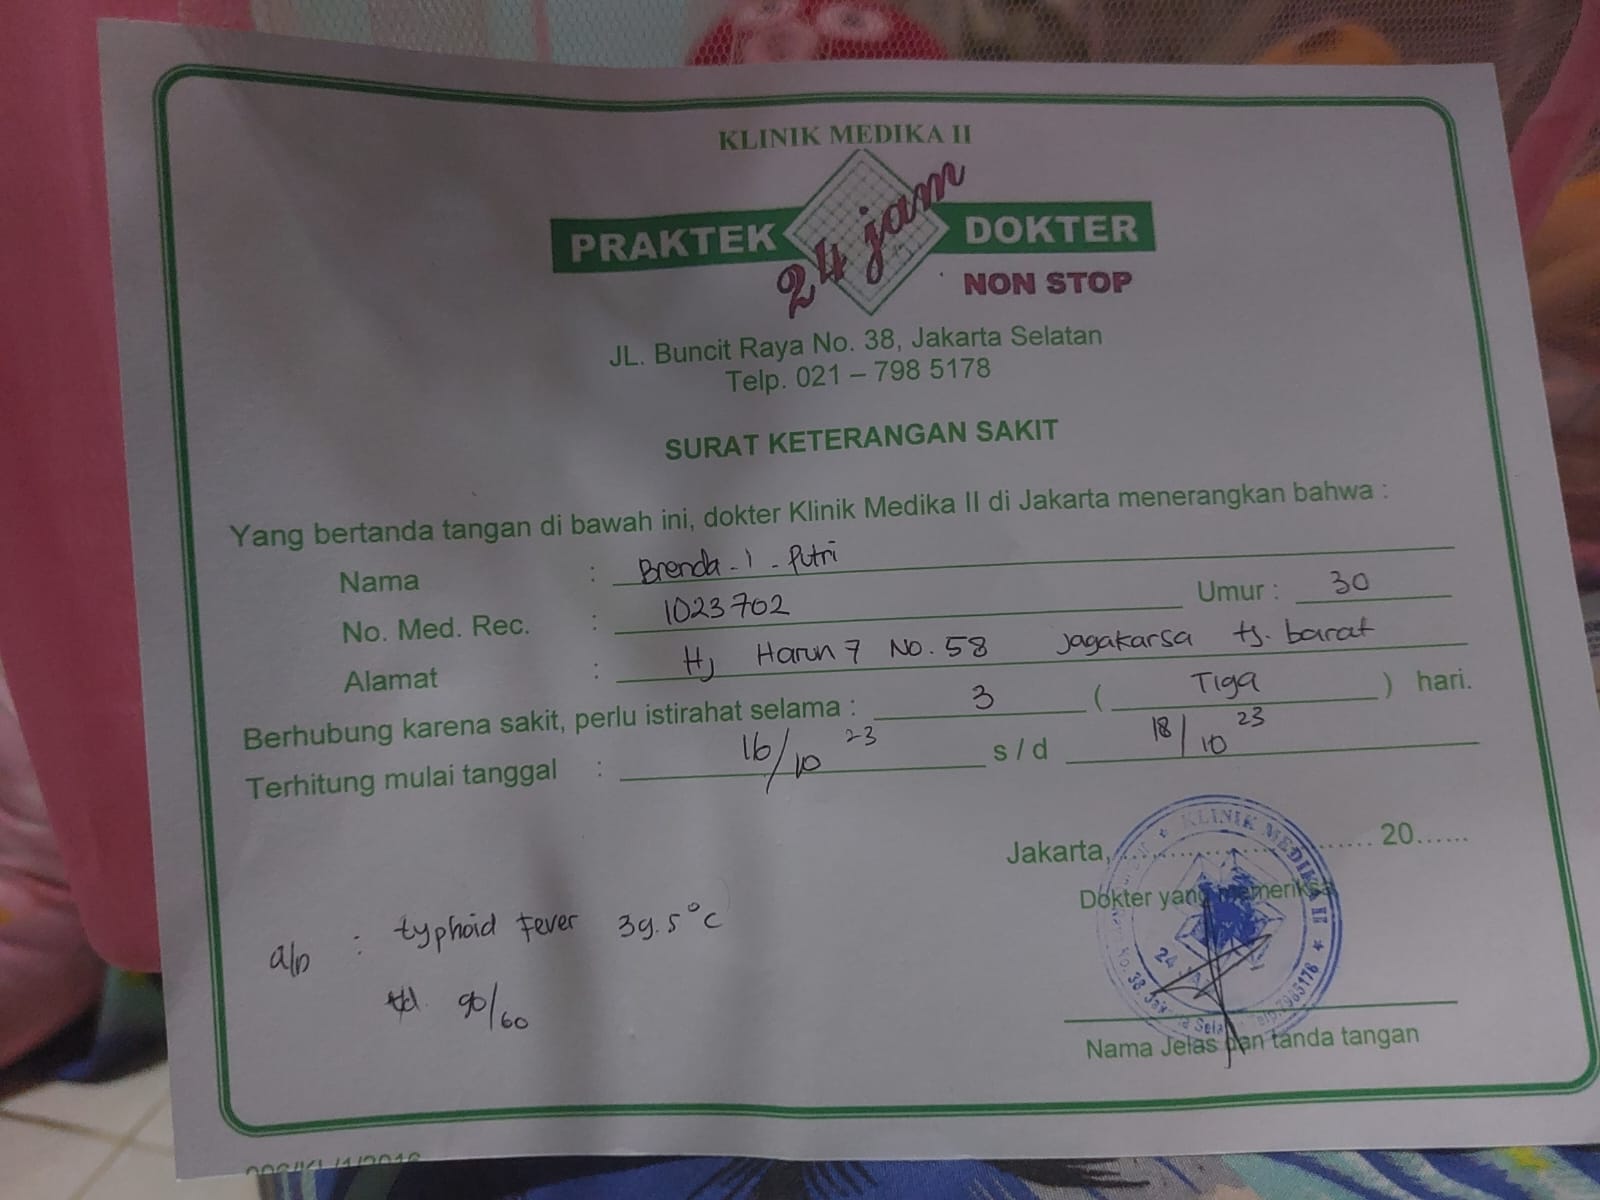 KLINIK MEDIKA II
PRAKTEK 24 jam DOKTER
NON STOP
JL. Buncit Raya No. 38, Jakarta Selatan
Telp. 021 – 798 5178
SURAT KETERANGAN SAKIT
Yang bertanda tangan di bawah ini, dokter Klinik Medika II di Jakarta menerangkan bahwa :
Nama : Brenda - I - Putri
No. Med. Rec. : 1023702 Umur : 30
Alamat : Hj Harun 7 No. 58 Jagakarsa ts. barat
Berhubung karena sakit, perlu istirahat selama : 3 ( Tiga ) hari.
Terhitung mulai tanggal : 16/10 23 s / d 18/10 23
Jakarta, .................... 20......
Dokter yang memeriksa
KLINIK MEDIKA II
24 JAM
No. 38, Jakarta Sela Telp.7985178
a/n : typhoid Fever 39.5°C
td. 90/60
Nama Jelas dan tanda tangan